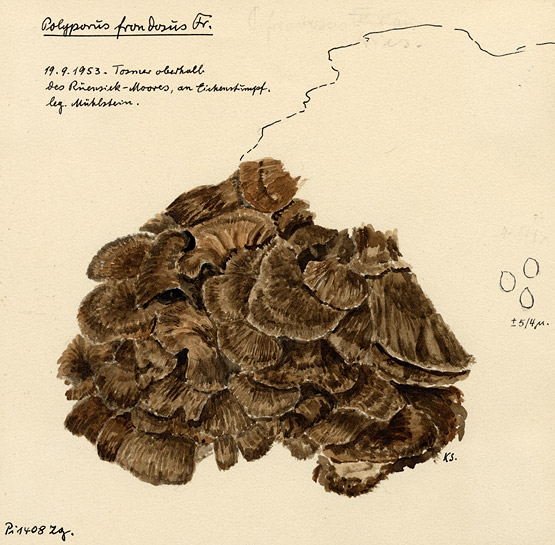 Polyporus frondosus Fr.
19.9.1953. Tosmar oberhalb
des Rüensiek-Moores, an Eichenstumpf.
leg. Mühlstein.
± 5/4 µ.
KS.
Pi 1408 Zg.